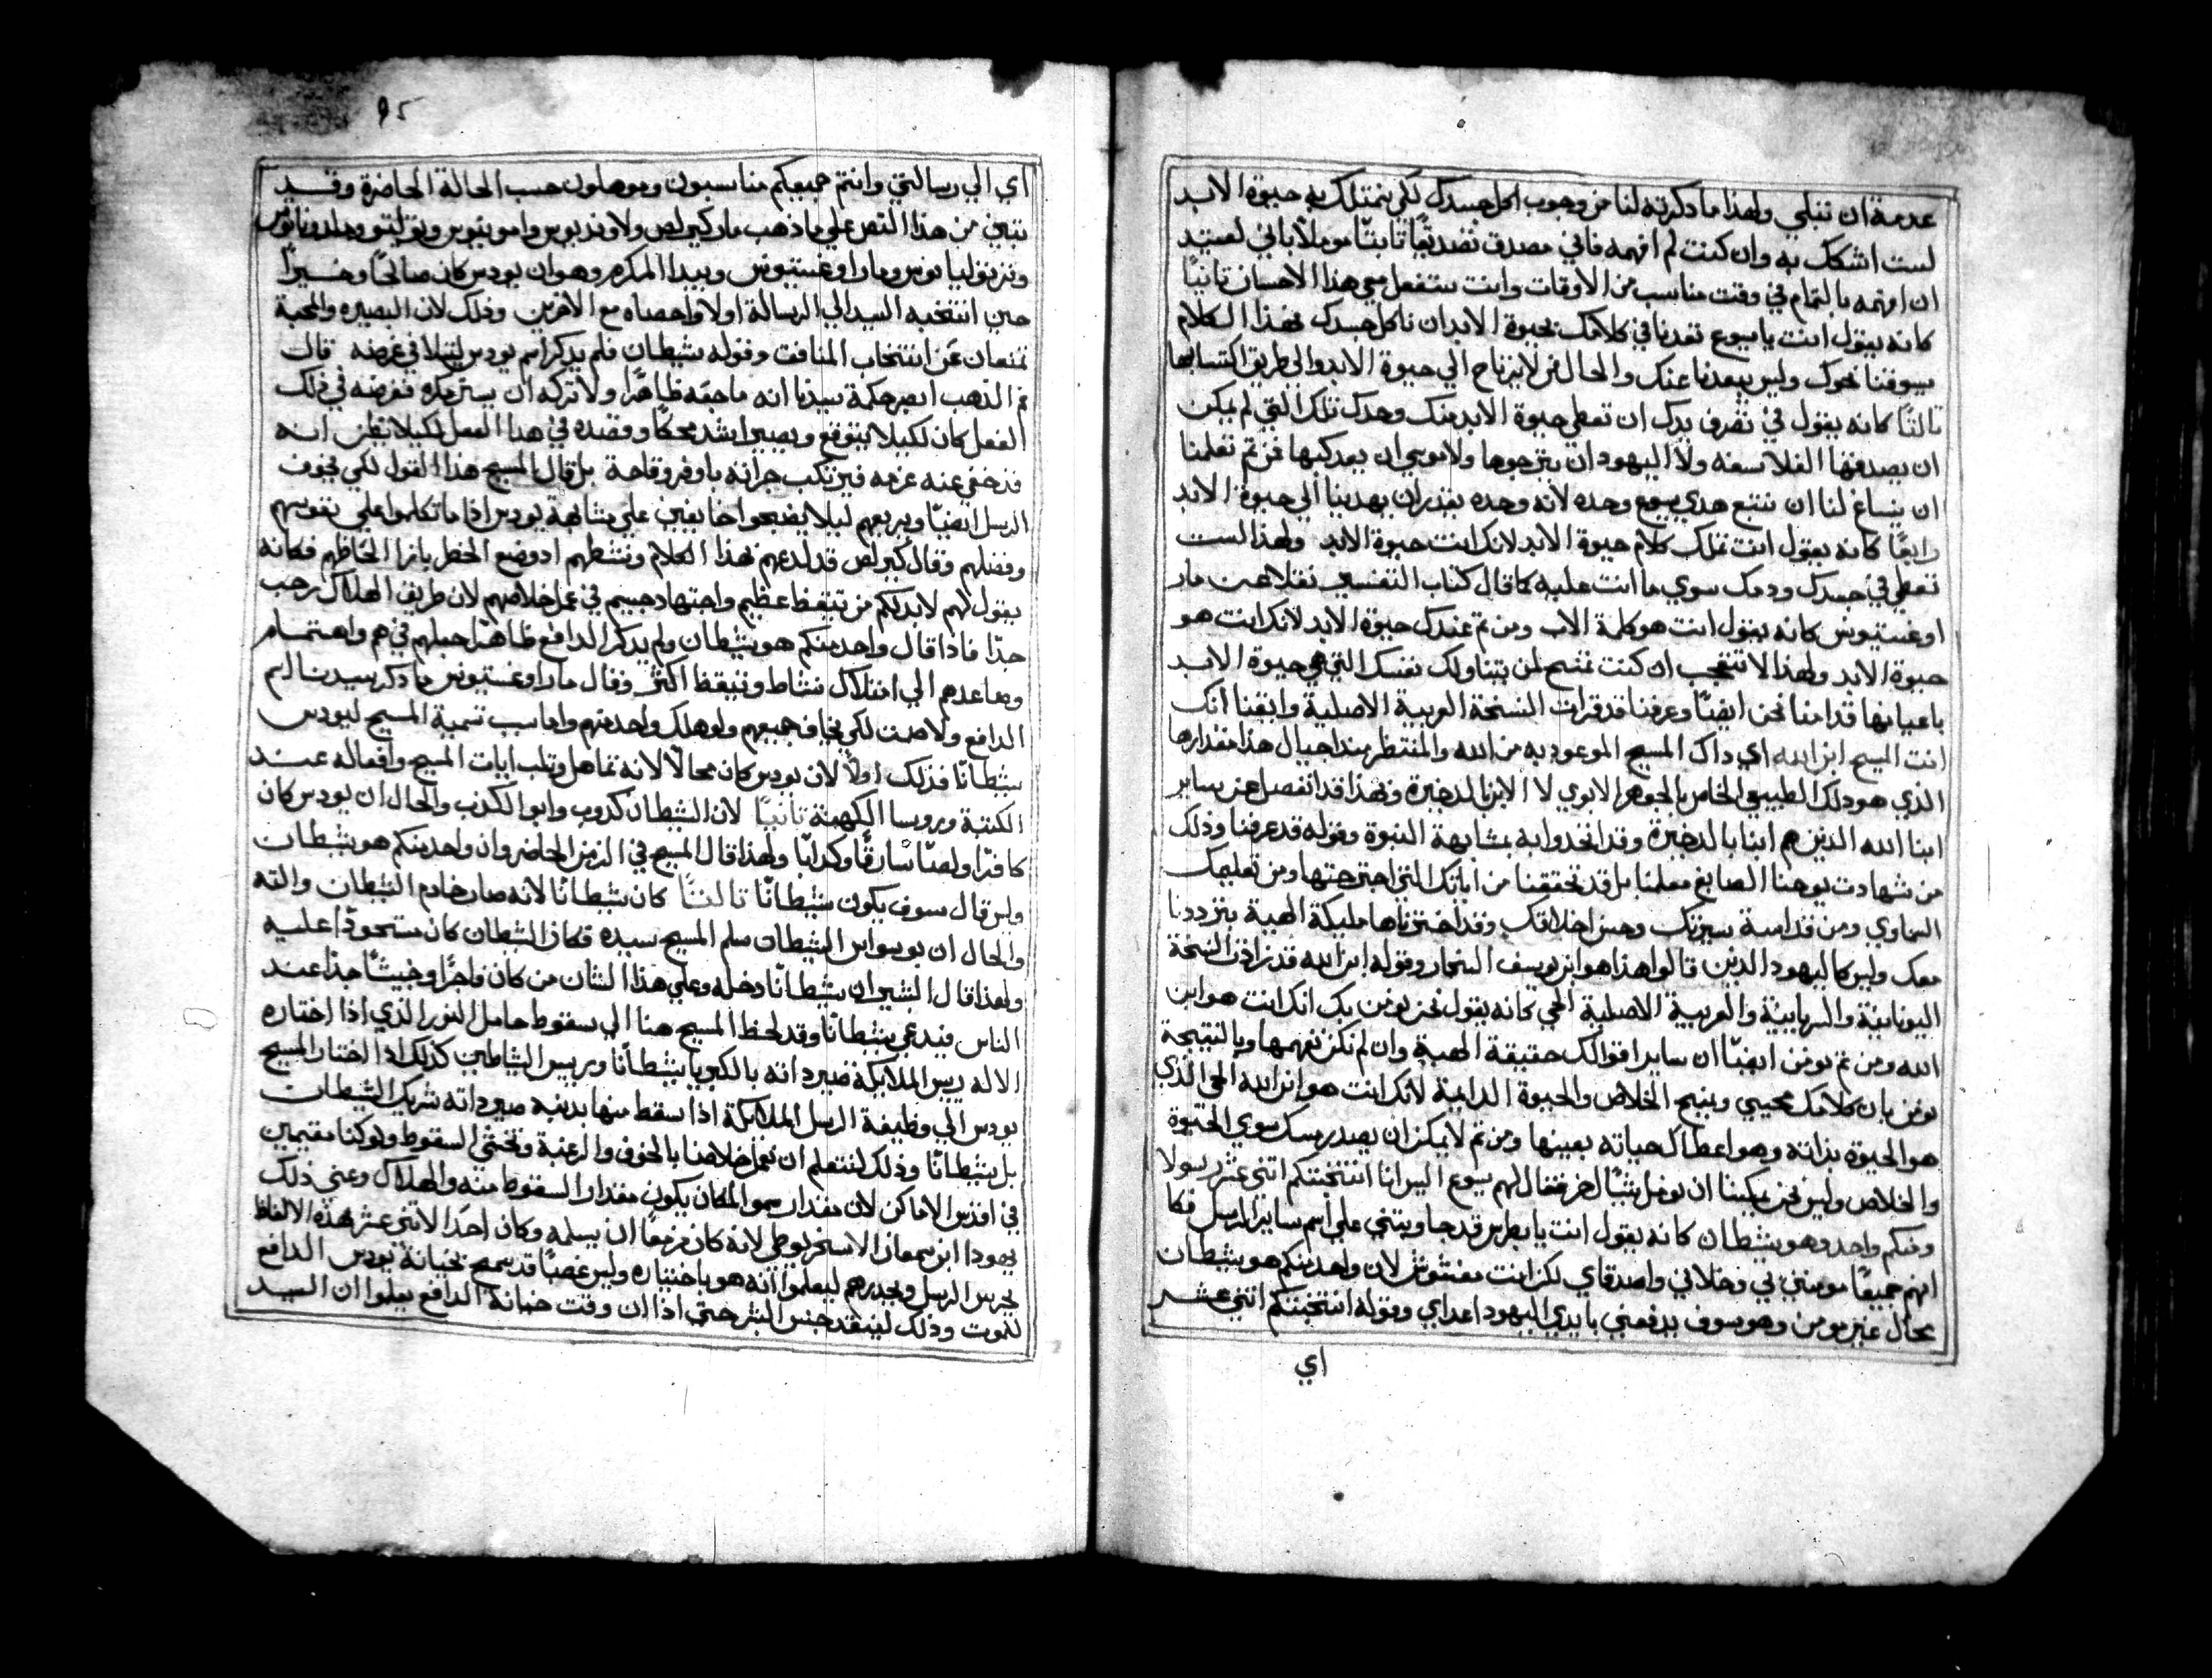 عدمة ان تبلي ولهذا ما ذكرته لنا من وجوب اكل جسدك لكي نمتلك به حيوة الابد
لست اشكك به وان كنت لم افهمه فاني مصدق تصديقًا ثابتًا موملًا باني لعتيد
ان افهمه بالتمام في وقت مناسب من الاوقات وانت ستفعل معي هذا الاحسان ثانيًا
كانه يقول انت يا يسوع تعدنا في كلامك بحيوة الابد ان ناكل جسدك فهذا الكلام
يسوقنا نحوك وليس يبعدنا عنك والحال من لا يرتاح الي حيوة الابد والي طريق اكتسابها
ثالثًا كانه يقول في تصرف يدك ان تعطي حيوة الابد منك وحدك تلك التي لم يمكن
ان يصدقها الفلاسفه ولا اليهود ان يترجوها ولا موسي ان يعد كبها فمن ثم تعلمنا
ان ينساغ لنا ان نتبع هدي يسوع وحده لانه وحده يقدر ان يهدينا الي حيوة الابد
رابعًا كانه يقول انت تملك كلام حيوة الابد لانك انت حيوة الابد ولهذا لست
تعطي في جسدك ودمك سوي ما انت عليه كما قال كتاب التفسير نقلا عن مار
اوغستينوس كانه يقول انت هو كلمة الاب ومن ثم عندك حيوة الابد لانك انت هو
حيوة الابد ولهذا لا تتعجب ان كنت تمنح لمن يتناولك نفسك التي هي حيوة الابد
باعيانها قد امنا نحن ايضًا وعرفنا قد قرات النسخة العربية الاصلية وايقنا انك
انت المسيح ابن الله اي ذاك المسيح الموعود به من الله والمنتظر منذ اجيال هذا مقدارها
الذي هو ذلك الطبيعي الخاص بالجوهر الابوي لا الابن بالذخيرة وبهذا قد انفصل عن ساير
ابنا الله الذين هم ابنا بالدخيرة وقد اتخذوا به بمشابهة البنوة وقوله قد عرفنا وذلك
من شهادت يوحنا الصابغ معلمنا بل قد تحققنا من اياتك التي اجترحتها ومن تعليمك
السماوي ومن قداسة سيرتك وحسن اخلاقك وقد اختبرناها مليكة الهية بترددنا
معك وليس كاليهود الذين قالوا هذا هو ابن يوسف النجار وقوله ابن الله قد زادت النسخة
اليونانية والسريانية والعربية الاصلية الحي كانه يقول نحن نومن بك انك انت هو ابن
الله ومن ثم نومن ايضًا ان ساير اقوالك حقيقة الهية وان لم نكن نفهمها وبالنتيجة
نومن بان كلامك محيي ويمنح الخلاص والحيوة الدايمة لانك انت هو ابن الله الحي الذي
هو الحيوة بذاته وهو اعطاك حياته بعينها ومن ثم لا يمكن ان يصدر منك سوي الحيوة
والخلاص وليس نحن يمكننا ان نومل شيًا اخر فقال لهم يسوع اليس انا انتخبتكم اثني عشر رسولا
ومنكم واحد وهو شيطان كانه يقول انت يا بطرس قد جاوبتني علي اسم ساير الرسل فكا
انهم جميعًا مومنين بي وخلاني واصدقاي لكن انت مغشوش لان واحد منكم هو شيطان
محال غير مومن وهو سوف يدفعني بايدي اليهود اعداي وقوله انتخبتكم اثني عشر
اي
95
اي الي رسالتي وانتم جميعكم مناسبون وموهلون حسب الحالة الحاضرة وقد
يتبين من هذا النص علي ما ذهب مار كيرلص ولاوندبوس وامونيوس وتولتو وملدوناتوس
وترتوليانوس ومار اوغستينوس وبيدا المكرم وهو ان يودس كان صالحًا وخيرًا
حين انتخبه السيد الي الرسالة اولا واحصاه مع الاخرين وذلك لان البصيره والمحبة
تمنعان عن انتخاب المنافق وقوله شيطان فلم يذكر اسم يودس ليتلافي غرضه قال
فم الذهب ابصر حكمة سيدنا انه ما جعله ظاهرًا ولا تركه ان يستتر مكره فغرضه في ذلك
الفعل كان لكيلا يتوقع ويصير اشد محكًا وقصده في هذا الفعل لكيلا يظن انه
قد خفي عنه عزمه فيرتكب جراته باوفر وقاحة بل قال المسيح هذا القول لكي يخوف
الرسل ايضًا ويريعهم ليلا يضحوا خايفين علي مشابهة يودس اذا ما تكلموا علي نفوسهم
وفضلهم وقال كيرلص قد لدعهم بهذا الكلام ونشطهم اد وضع الخطر بازا الحاظهم فكانه
يقول لهم لا بد لكم من تيقظ عظيم واجتهاد جسيم في عمل خلاصكم لان طريق الهلاك رحب
جدًا فاذا قال واحد منكم هو شيطان ولم يذكر الدافع ظاهرًا جعلهم في هم واهتمام
وساعدهم الي امتلاك نشاط وتيقظ اكثر وقال مار اوغستينوس ما ذكر سيدنا اسم
الدافع ولا صمت لكي يخاف جميعهم ولو هلك واحد منهم واما سبب تسمية المسيح ليودس
شيطانًا فذلك اولًا لان يودس كان محالًا لانه تماهل وثلب ايات المسيح وافعاله عند
الكتبة وروسا الكهنة ثانيًا لان الشيطان كدوب وابو الكدب والحال ان يودس كان
كافرًا ولصًا سارقًا وكدابًا ولهذا قال المسيح في الزمن الحاضر وان واحد منكم هو شيطان
وليس قال سوف يكون شيطانًا ثالثًا كان شيطانًا لانه صار خادم الشيطان والته
والحال ان يودس وابن الشيطان سلم المسيح سيده فكان الشيطان كان مستحوذًا عليه
ولهذا قال البشير ان شيطانًا دخله وعلي هذا الشان من كان فاجرًا وخبيثًا جدًا عند
الناس فيدعي شيطانًا وقد لحظ المسيح هنا الي سقوط حامل النور الذي اذا اختاره
الاله ريس الملايكة صير ذاته بالكبريا شيطانًا وريس الشياطين كذلك اذا اختار المسيح
يودس الي وظيفة الرسل الملايكة اذا سقط منها بدنبه صير ذاته شريك الشيطان
بل شيطانًا وذلك لنتعلم ان نعمل خلاصنا بالخوف والرعبة ونختشي السقوط ولو كنا مقيمين
في اقدس الاماكن لان مقدار سمو المكان يكون مقدار السقوط منه والهلاك وعني ذلك
يهودا ابن سمعان الاسخريوطي لانه كان مزمعًا ان يسلمه وكان احد الاثني عشر بهذه الالفاظ
يحرس الرسل ويحدرهم ليعلموا انه هو باختياره وليس غصبًا قد سمح بخيانة يودس الدافع
للموت وذلك لينقد جنس البشر حتي اذا ان وقت خيانة الدافع يعلموا ان السيد